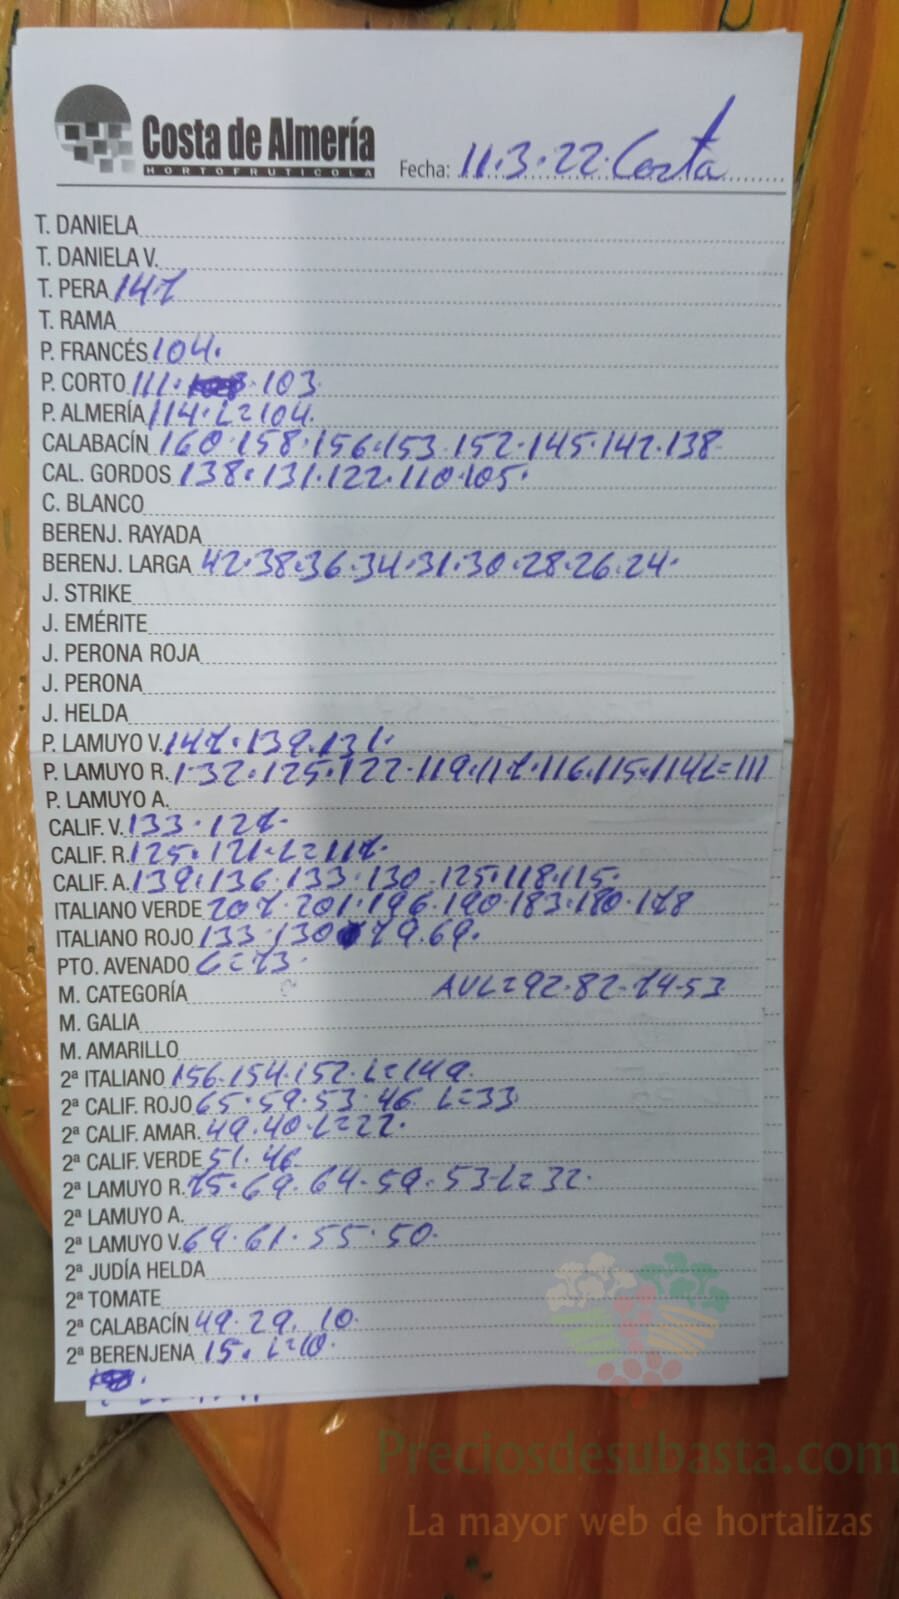 Costa de Almería
HORTOFRUTICOLA
Fecha: 11.3.22. Costa
T. DANIELA
T. DANIELA V.
T. PERA 147
T. RAMA
P. FRANCÉS 104.
P. CORTO 111. 103
P. ALMERÍA 114. L=104.
CALABACÍN 160.158.156.153.152.145.142.138
CAL. GORDOS 138.131.122.110.105.
C. BLANCO
BERENJ. RAYADA
BERENJ. LARGA 42.38.36.34.31.30.28.26.24.
J. STRIKE
J. EMÉRITE
J. PERONA ROJA
J. PERONA
J. HELDA
P. LAMUYO V. 147.139.131.
P. LAMUYO R. 1-32.125.122.119.117.116.115.114 L=111
P. LAMUYO A.
CALIF. V. 133.127.
CALIF. R. 125.121.L=117.
CALIF. A. 139.136.133.130.125.118.115.
ITALIANO VERDE 207.201.196.190.183.180.178
ITALIANO ROJO 133.130 79.69.
PTO. AVENADO L=73.
M. CATEGORÍA AVL=92.82-74-53
M. GALIA
M. AMARILLO
2ª ITALIANO 156.154.152.L=149.
2ª CALIF. ROJO 65.59.53.46 L=33
2ª CALIF. AMAR. 49.40.L=22.
2ª CALIF. VERDE 51.46
2ª LAMUYO R. 75.69.64-59.53-L=32.
2ª LAMUYO A.
2ª LAMUYO V. 69.61.55.50.
2ª JUDÍA HELDA
2ª TOMATE
2ª CALABACÍN 49.29.10
2ª BERENJENA 15. L=10.
Preciosdesubasta.com
La mayor web de hortalizas